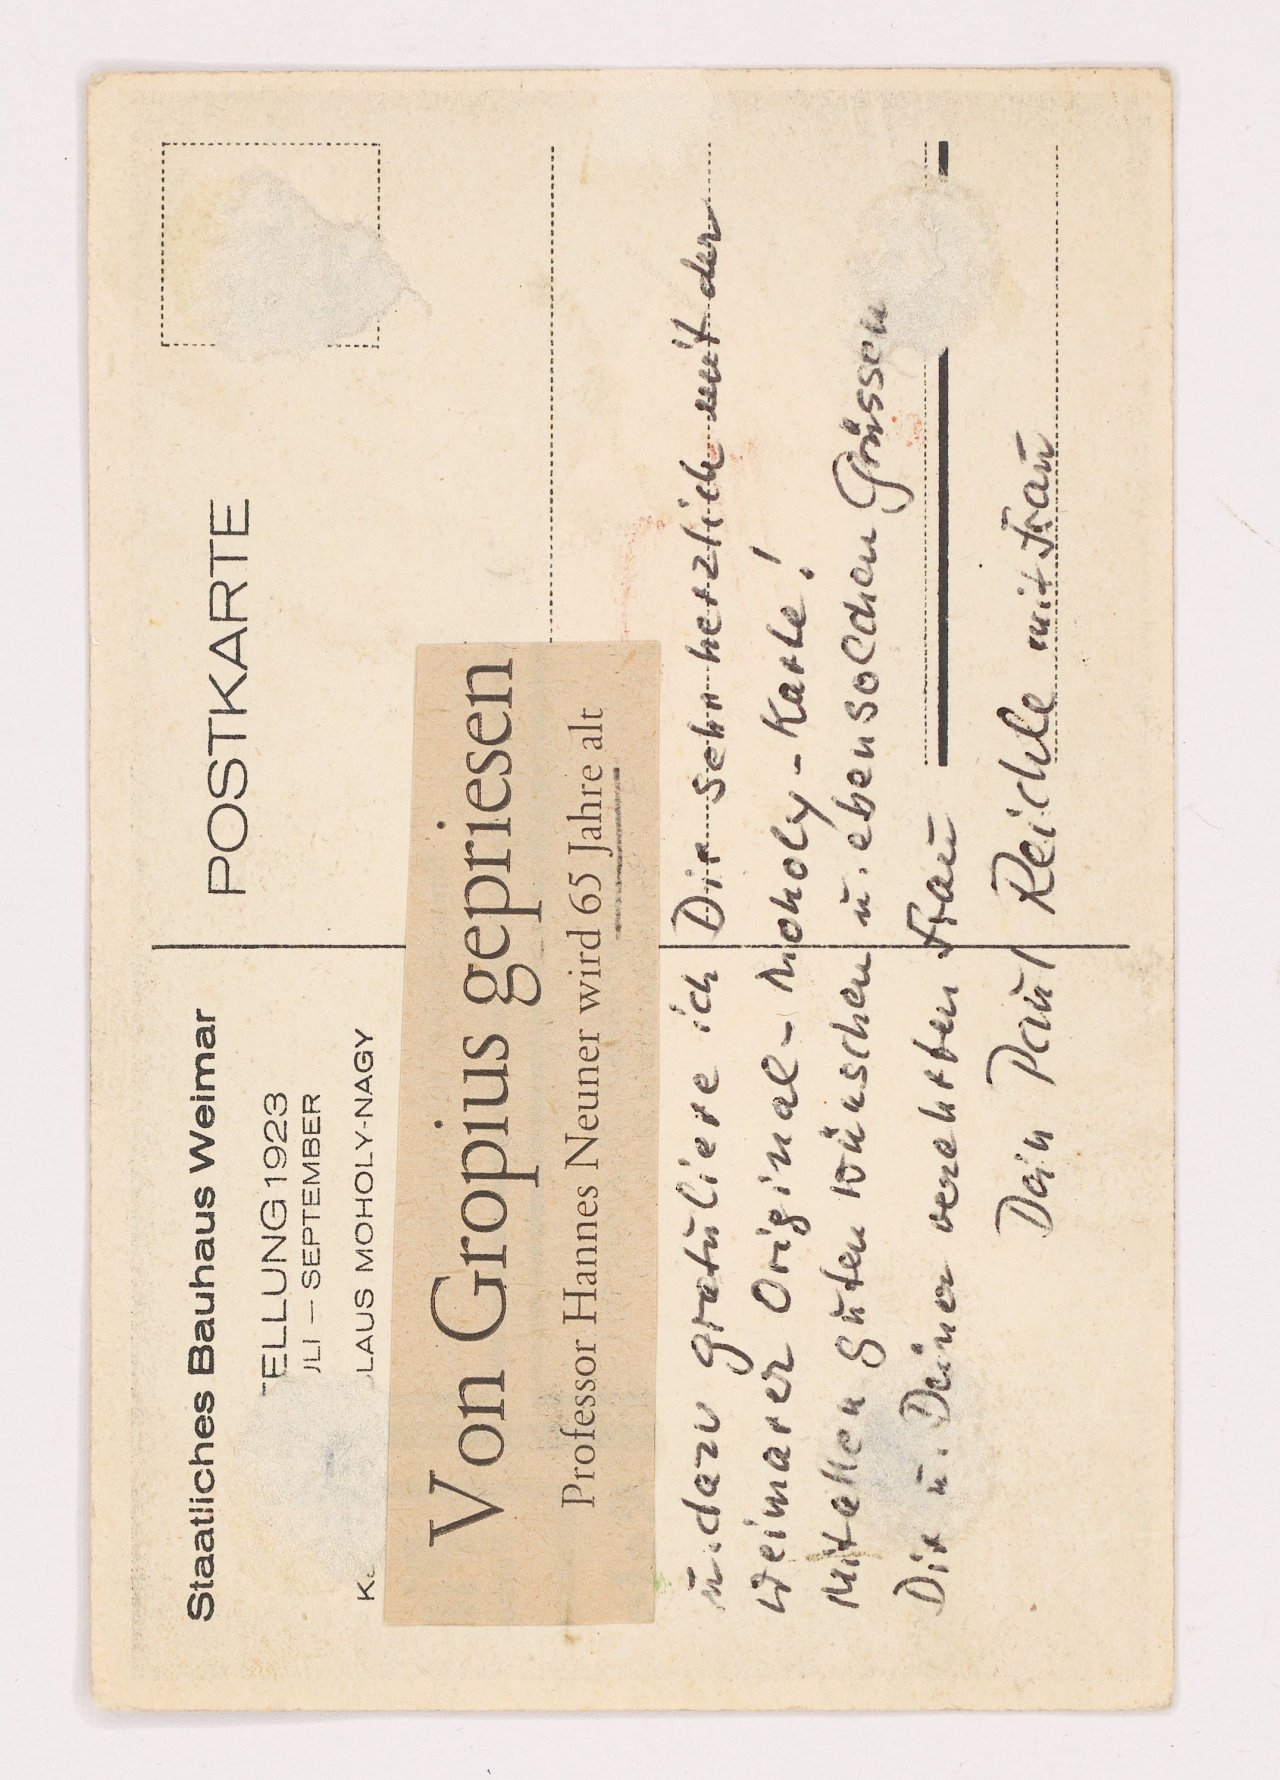 Staatliches Bauhaus Weimar
TELLUNG 1923
ULI – SEPTEMBER
K. LAUS MOHOLY-NAGY
POSTKARTE
Von Gropius gepriesen
Professor Hannes Neuner wird 65 Jahre alt
u. dazu gratuliere ich Dir sehr herzlich mit der
Weimarer Original-Moholy-Karte!
Mit allen guten Wünschen u. ebensolchen Grüssen
Dir u. Deiner verehrten Frau
Dein Paul Reichle mit Frau